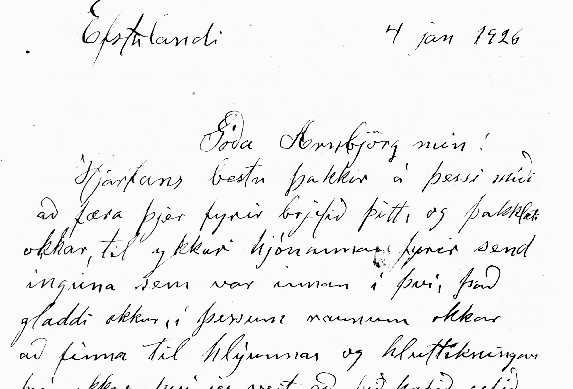 Efstalandi 4 jan 1926
Góða Arnbjörg mín!
Hjartans bestu þakkir á þessi miði
að færa þjer fyrir brjefið þitt, og þakklæti
okkar, til ykkar hjónanna, fyrir send
inguna sem var innan í því, það
gladdi okkur, í þessum raunum okkar
að finna til hlýunnar og hluttekningar